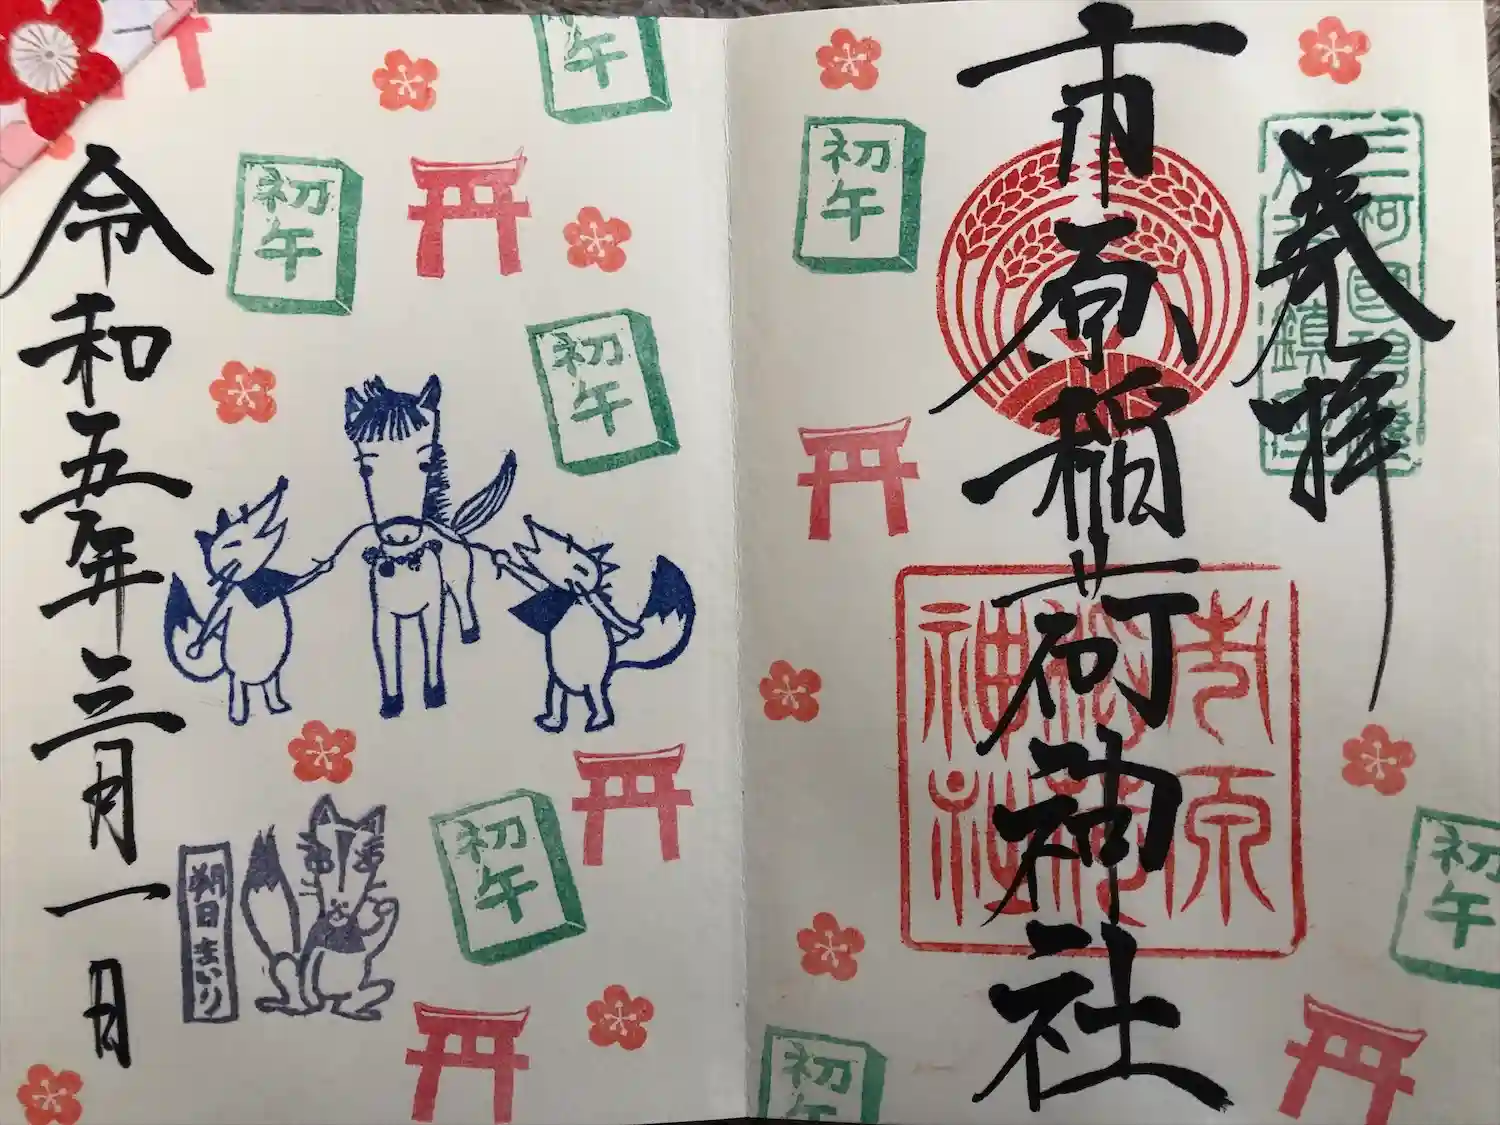 奉拝
三河國
市原稲荷神社
市原
稲荷
神社
初午
初午
初午
初午
初午
初午
初午
朔日まいり
令和五年三月一日